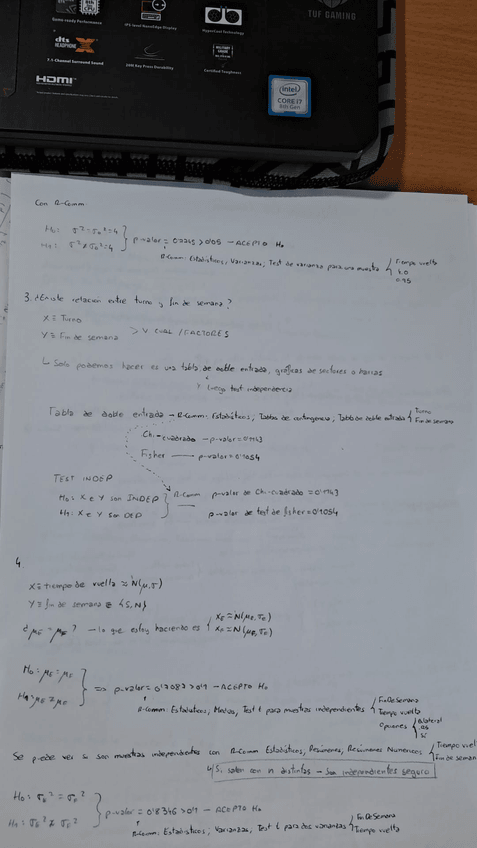 Game-ready Performance
IPS level NanoEdge Display
HyperCool Technology
TUF GAMING
dts
HEADPHONE X
7.1-Channel Surround Sound
20M Key Press Durability
Certified Toughness
HDMI
intel
CORE i7
8th Gen
Con R-Comm
H0: σ²=σ0²=4
H1: σ²≠σ0²=4
p-valor = 0'2245 > 0'05 → ACEPTO H0
R-Comm: Estadísticos, Varianzas, Test de varianza para una muestra
Tiempo vuelta
4.0
0.95
3. ¿Existe relación entre turno y fin de semana?
X ≡ Turno
Y ≡ Fin de semana
> V CUAL / FACTORES
↳ Solo podemos hacer es una tabla de doble entrada, gráficas de sectores o barras
Y luego test independencia
Tabla de doble entrada → R-Comm: Estadísticos, Tablas de contingencia, Tabla de doble entrada
Turno
Fin de semana
Chi-cuadrado → p-valor = 0'1143
Fisher → p-valor = 0'1054
TEST INDEP
H0: X e Y son INDEP
H1: X e Y son DEP
R-Comm p-valor de Chi-cuadrado = 0'1143
p-valor de test de fisher = 0'1054
4.
X ≡ tiempo de vuelta ≈ N(μ,σ)
Y ≡ fin de semana
¿μE = μE? → lo que estoy haciendo es
H0 = μE = μE
H1 = μE ≠ μE
⇒ p-valor = 0'7087 > 0'1 → ACEPTO H0
R-Comm: Estadísticos, Medias, Test t para muestras independientes
Fin De Semana
Tiempo vuelta
Opciones
Bilateral
Sí
Se puede ver si son muestras independientes con R-Comm Estadísticos, Resúmenes, Resúmenes Numéricos
Tiempo vuelta
Fin de seman
Si salen con n distintas → Son independientes seguro
H0: σE² = σE²
H1: σE² ≠ σE²
p-valor = 0'8346 > 0'1 → ACEPTO H0
R-Comm: Estadísticos, Varianzas, Test t para dos varianzas
Fin De Semana
Tiempo vuelta